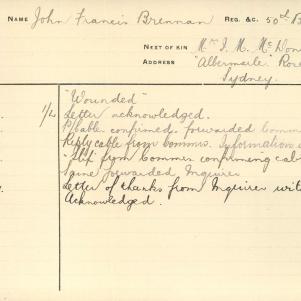 NAME John Francis Brennan REG. &C. 50th B
NEXT OF KIN Mrs I. M. Mc Don
ADDRESS "Albermarle" Rose
Sydney.
"Wounded"
1/2 Letter acknowledged.
P/cable confirmed forwarded Comm
Reply cable from Commis. Information
slip from Commis confirming cab
Same forwarded Inquirer
Letter of thanks from Inquirer wit
Acknowledged.